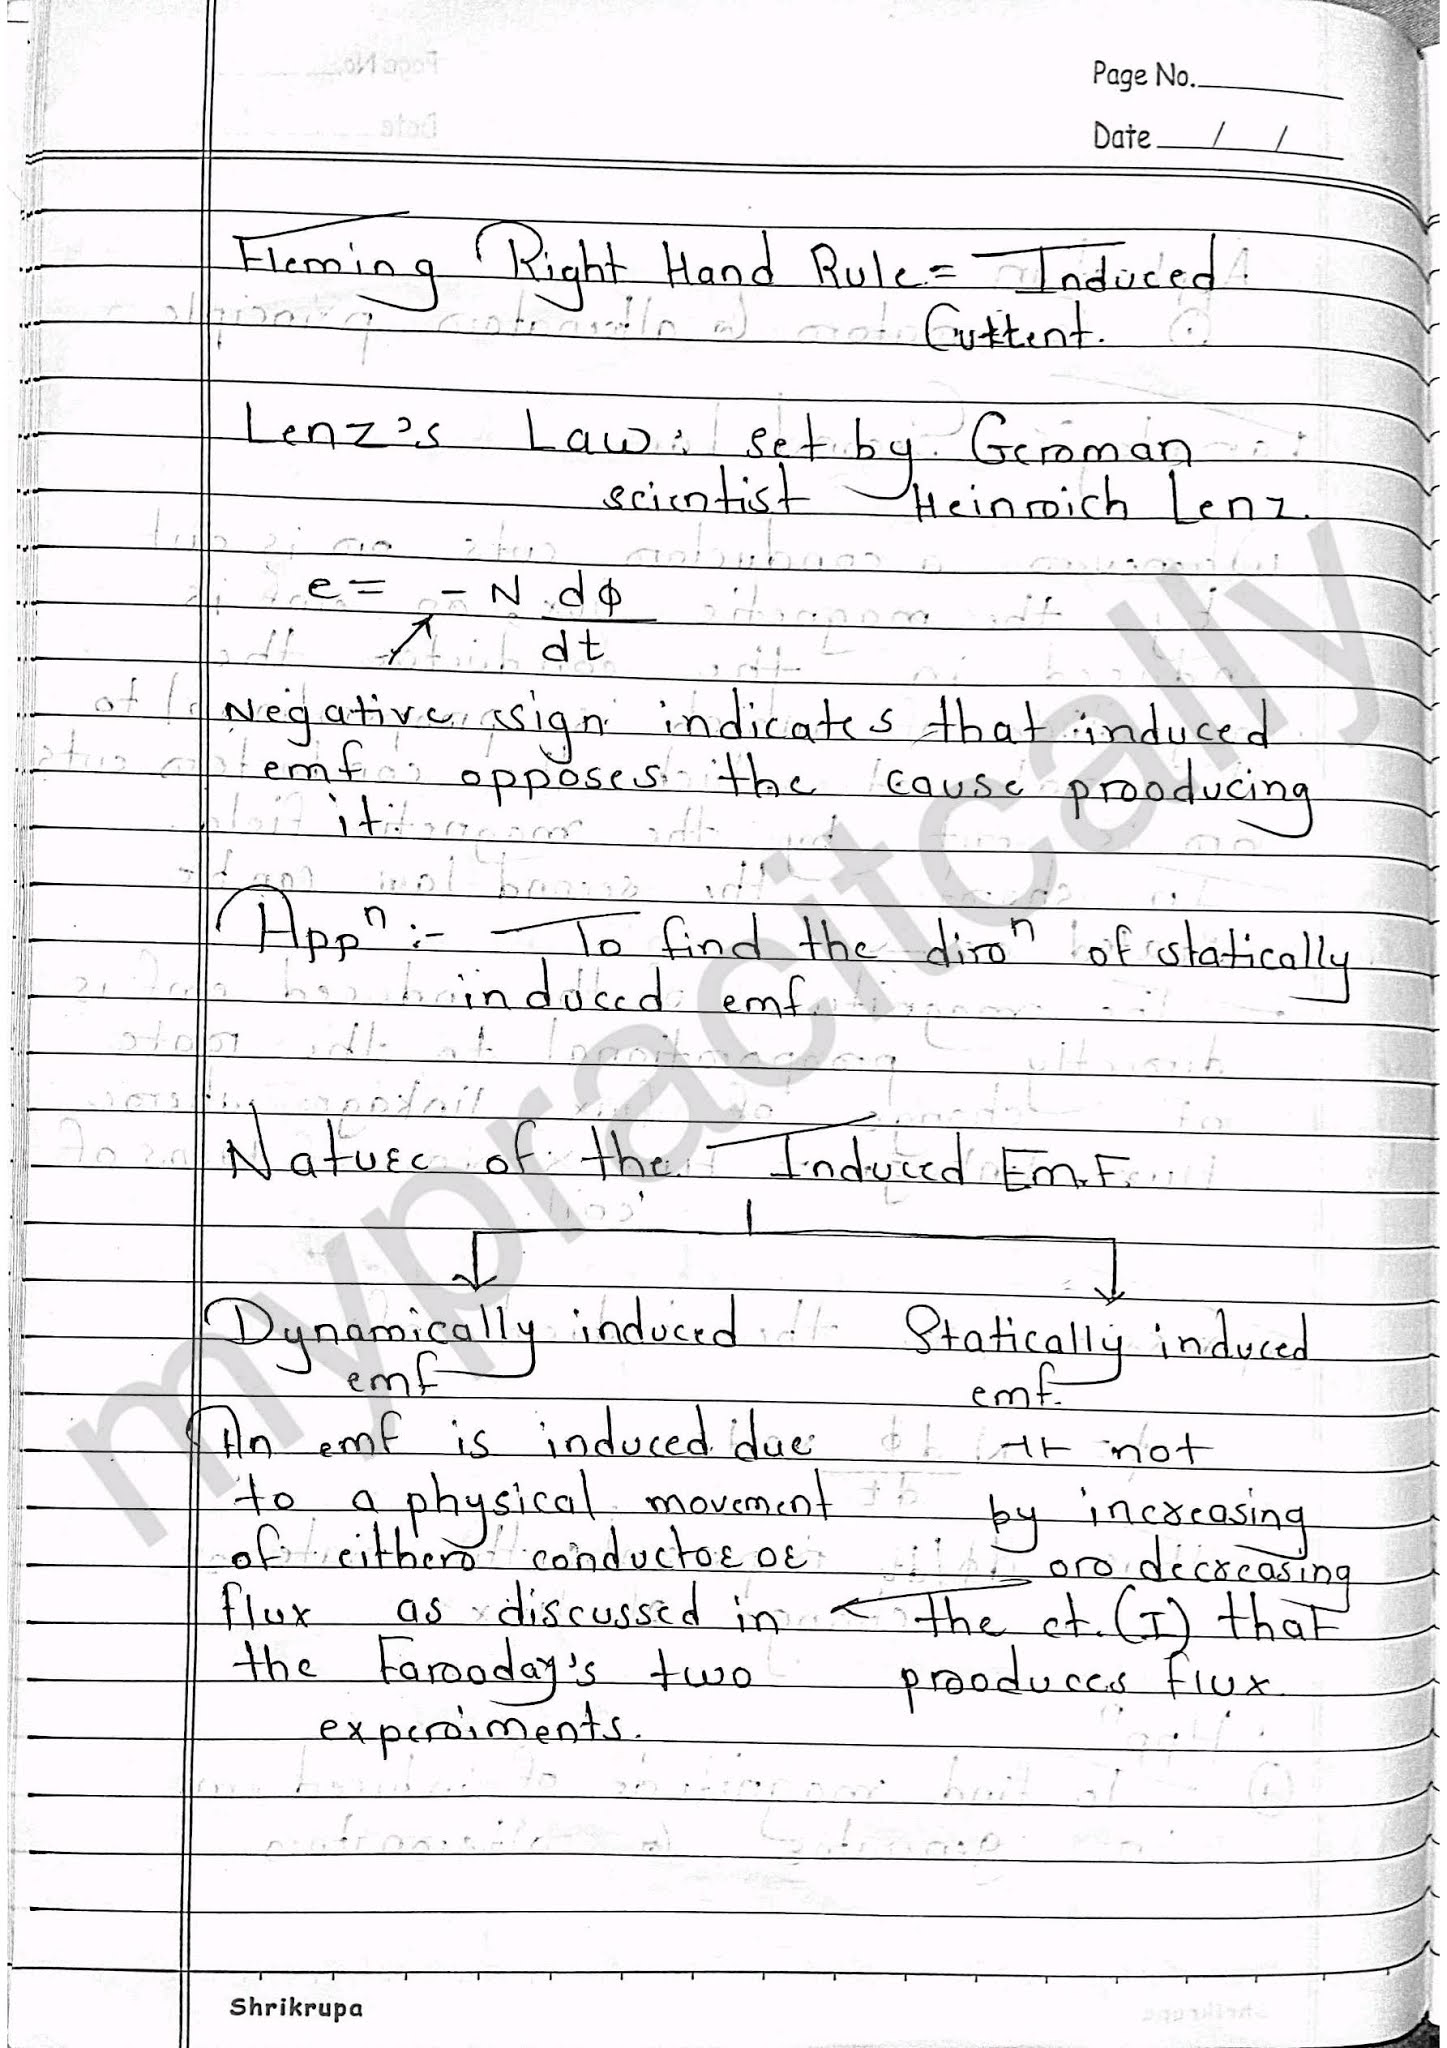 Page No.
Date / /
Fleming Right Hand Rule = Induced
Current.
Lenz's Law: set by German
scientist Heinrich Lenz.
e = - N dϕ
dt
Negative sign indicates that induced
emf opposes the cause producing
it.
Appⁿ :- To find the dirⁿ of statically
induced emf.
Nature of the Induced Em.F.
Dynamically induced
emf
An emf is induced due
to a physical movement
of either conductor or
flux as discussed in
the Faraday's two
experiments.
Statically induced
emf.
not
by increasing
or decreasing
the ct. (I) that
produces flux.
Shrikrupa
mypracitcally